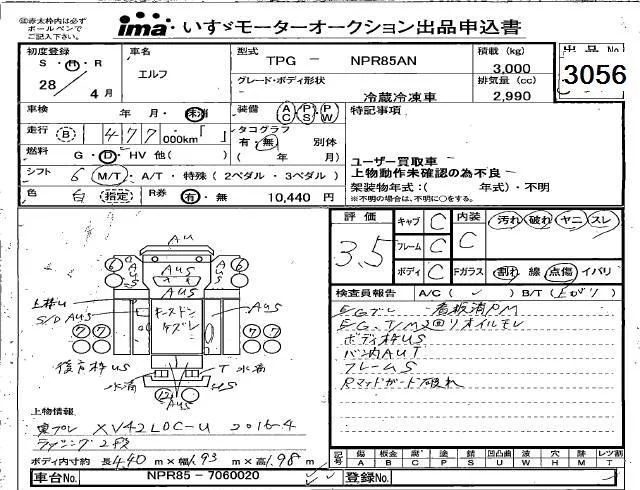 ㊟赤太枠内は必ず
ボールペンで
ご記入下さい。
ima いすゞモーターオークション出品申込書
初度登録 車名 型式 積載 (kg) 出品No
S・H・R エルフ TPG － NPR85AN 3,000
28 4月 グレード・ボディ形状 排気量 (cc) 3056
冷蔵冷凍車 2,990
車検 年 月・未満 装備 AC PS PW 特記事項
走行 B 477,000km「 」 タコグラフ
有・無 別体
燃料 G・D・HV 他( ) ( 年 月) ユーザー買取車
シフト 6 M/T・A/T・特殊(2ペダル・3ペダル) 上物動作未確認の為不良
架装物年式:( 年式)・不明
色 白 指定 R券 有・無 10,440 円 ※不明の場合は、不明に○をする。
評価 キャブ C 内装 汚れ 破れ ヤニ スレ
3.5 フレーム C C
ボディ C Fガラス 割れ 線 点傷 イバリ
検査員報告 A/C( ✓ ) B/T( 上がり )
AU
6 AUS 6
AUS
上枠U
S/D AUS キースドン ケズレ AUS
7 7 7 7
後方枠US T 水滴
水滴 US
AUS
看板済PM
EG、T/M2回りオイルモレ
ボディ枠US
バン内AUT
フレームS
Rマッドガード破れ
上物情報
東プレ XV42LDC-U 2016-4
ラッシング2段
ボディ内寸約 長4.40 m×幅1.93 m×高1.98 m
記号 傷 板金 腐 塗 錆 凹凸曲 波 穴 跡 レツ割
A B C P S U W H M T
車台No. NPR85－7060020 登録No.